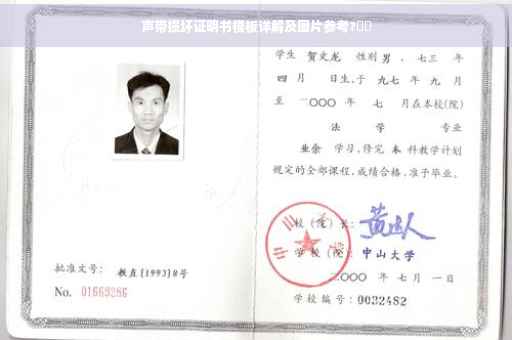 声带损坏证明书模板详解及图片参考?
学生 贺文龙 性别 男 、七三 年
四 月 日生,于 九七 年 九 月
至 二〇〇〇 年 七 月在本校(院)
法 学 专业
业余 学习,修完 本 科教学计划
规定的全部课程,成绩合格,准予毕业。
校(院)长:
学校(院): 中山大学
二〇〇〇 年 七 月 一 日
学校编号: 0032482
批准文号: 教直[1993]8号
No. 01669286